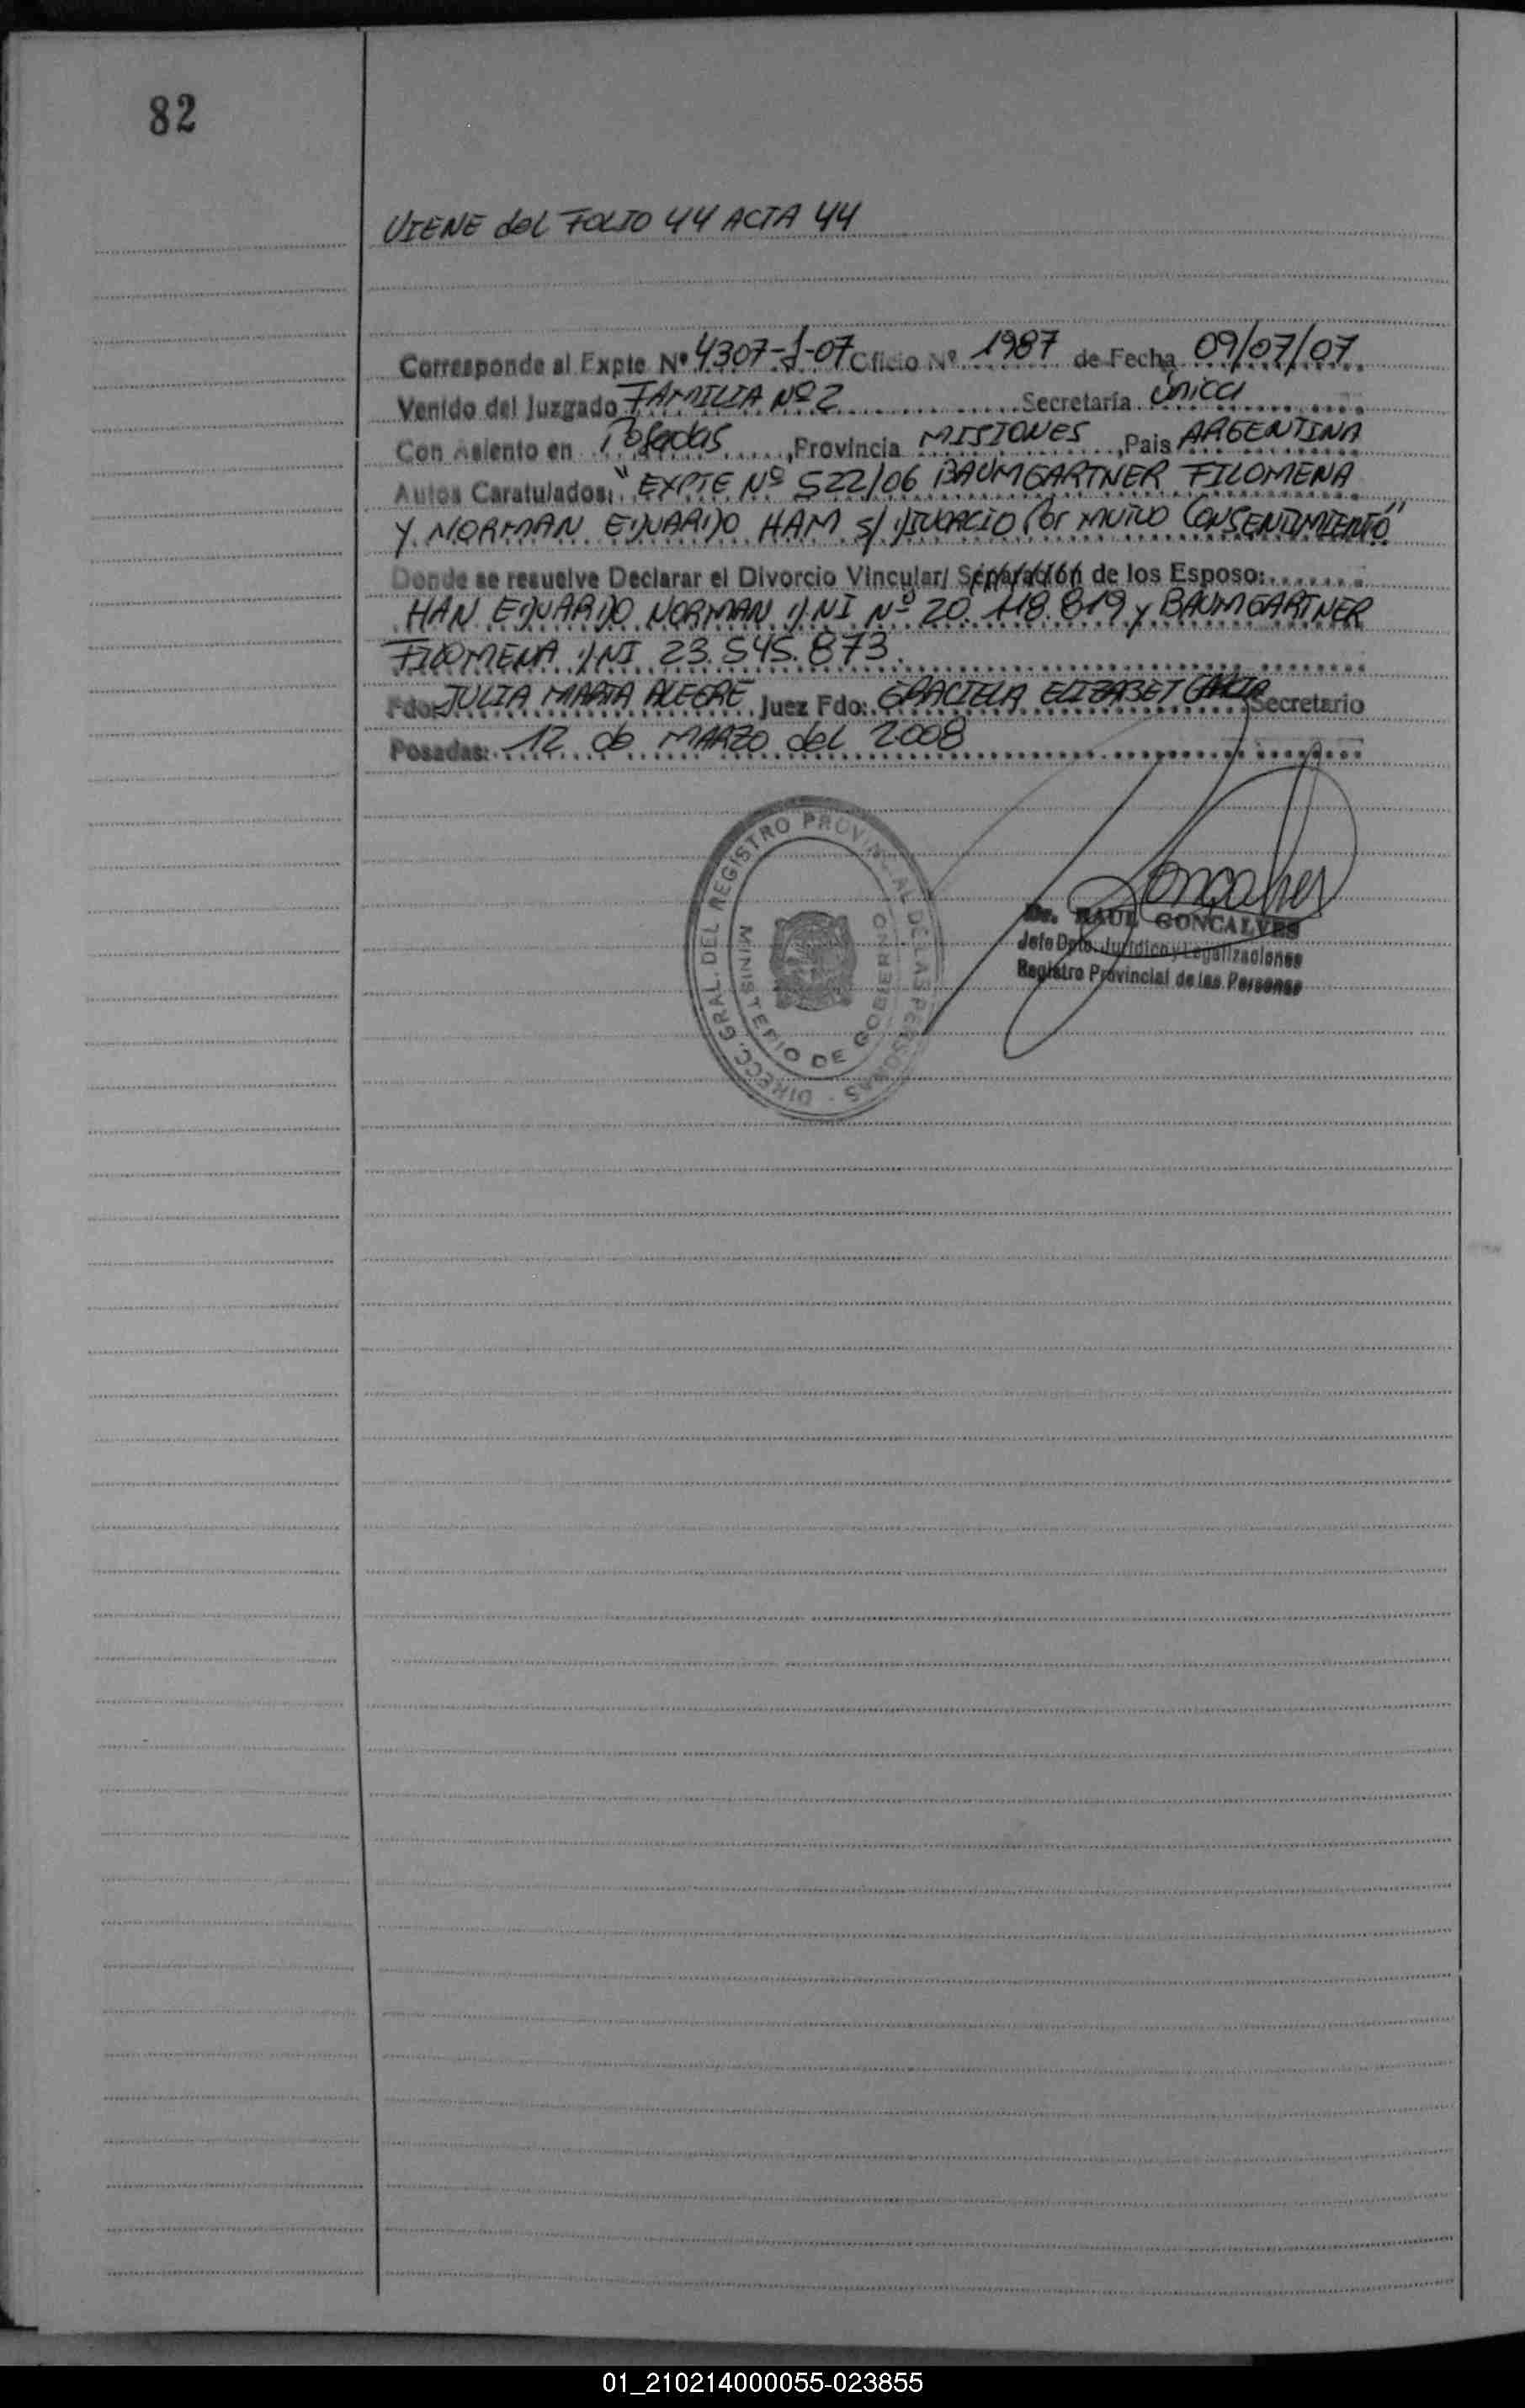 82
VIENE del FOLIO 44 ACTA 44
Corresponde al Expte Nº 4307-J-07 Oficio Nº 1987 de Fecha 09/07/07
Venido del Juzgado FAMILIA Nº 2 Secretaría Única
Con Asiento en Posadas, Provincia MISIONES, Pais ARGENTINA
Autos Caratulados: "EXPTE Nº 522/06 BAUMGARTNER FILOMENA
Y NORMAN EDUARDO HAM S/ DIVORCIO Por MUTUO CONSENTIMIENTO"
Donde se resuelve Declarar el Divorcio Vincular/ Separación de los Esposo:
HAN EDUARDO NORMAN DNI Nº 20.118.819 y BAUMGARTNER
FILOMENA DNI 23.545.873.
Fdo: JULIA MARTA ALEGRE Juez Fdo: GRACIELA ELIZABET Secretario
Posadas: 12 de MARZO del 2008
DIRECC. GRAL. DEL REGISTRO PROVINCIAL DE LAS PERSONAS -
MINISTERIO DE GOBIERNO
Goncalves
Dr. RAUL GONCALVES
Jefe Dpto. Jurídico y Legalizaciones
Registro Provincial de las Personas
01_210214000055-023855